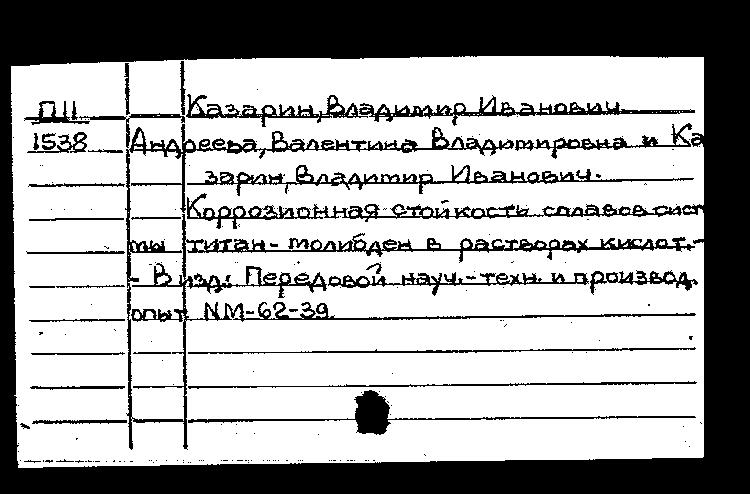 П11 Казарин, Владимир Иванович
1538 Андреева, Валентина Владимировна и Ка
зарин, Владимир Иванович.
Коррозионная стойкость сплавов сист
мы титан-молибден в растворах кислот.-
- В изд.: Передовой науч.-техн. и производ.
опыт NM-62-39